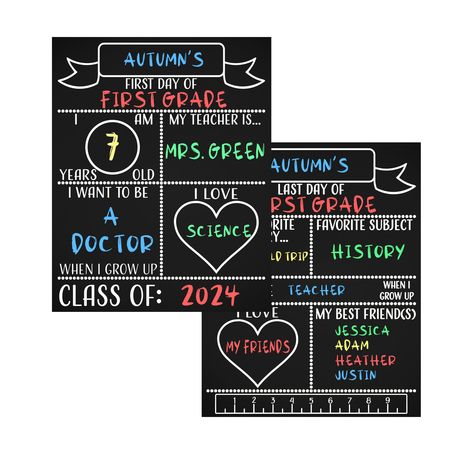 AUTUMN'S
FIRST DAY OF
FIRST GRADE
I AM
7
YEARS OLD
MY TEACHER IS...
MRS. GREEN
I WANT TO BE
A
DOCTOR
WHEN I GROW UP
I LOVE
SCIENCE
CLASS OF: 2024
AUTUMN'S
LAST DAY OF
RST GRADE
ORITE
Y...
LD TRIP
FAVORITE SUBJECT
HISTORY
TEACHER
WHEN I
GROW UP
I LOVE
MY FRIENDS
MY BEST FRIEND(S)
JESSICA
ADAM
HEATHER
JUSTIN
1 2 3 4 5 6 7 8 9